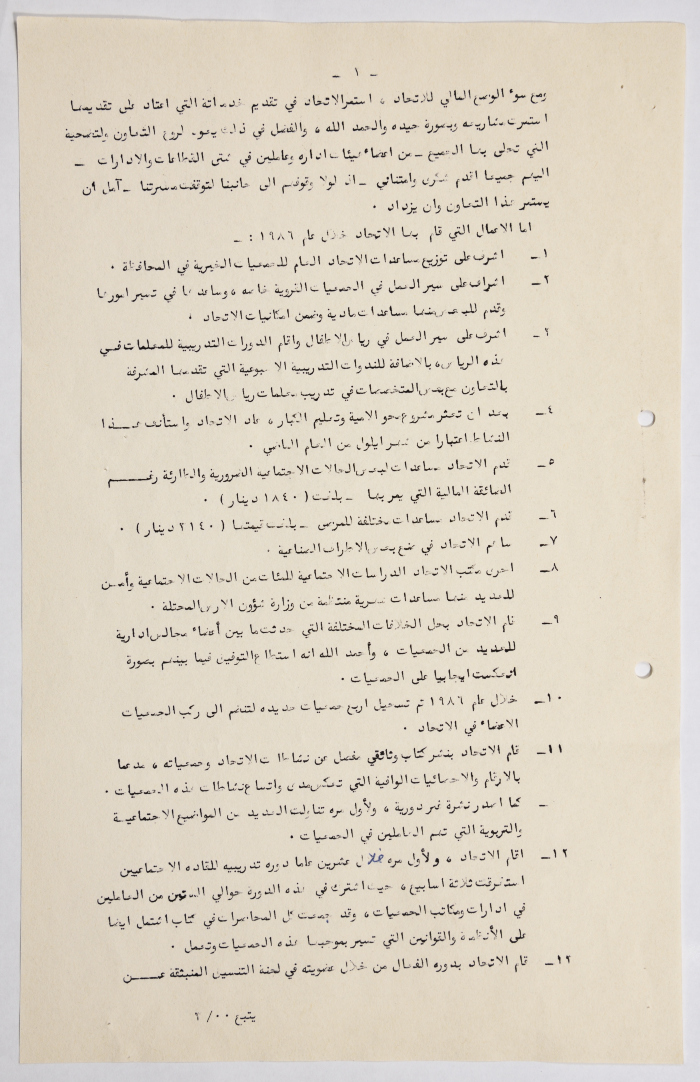 - ١ -
ومع سوء الوضع المالي للاتحاد ، استمر الاتحاد في تقديم خدماتة التي اعتاد على تقديمها
استمرت مشاريعه وبصورة جيده والحمد الله ، والفضل في ذلك يعود لروح التعاون والتضحية
التي تحلى بها الجميع - من اعضاء هيئات اداره وعاملين في شتى القطاعات والادارات -
اليهم جميعا اقدم شكري وامتناني - اذ لولا وقوفهم الى جانبنا لتوقفت مسيرتنا - آمل أن
يستمر هذا التعاون وان يزداد .
اما الاعمال التي قام بها الاتحاد خلال عام ١٩٨٦ : -
١- اشرف على توزيع مساعدات الاتحاد العام للجمعيات الخيرية في المحافظة .
٢- اشراف على سير العمل في الجمعيات القروية خاصه ، وساعدها في تسير امورها
وقدم للبعض منها مساعدات مادية وضمن امكانيات الاتحاد .
٣- اشرف على سير العمل في رياض الاطفال واقام الدورات التدريبية للمعلمات في
هذه الرياض ، بالاضافة للندوات التدريبية الاسبوعية التي تقدمها المشرفة
بالتعاون مع بعض المتخصصات في تدريب معلمات رياض الاطفال .
٤- بعد ان تعثر مشروع محو الامية وتعليم الكبار ، عاد الاتحاد واستأنف هــذا
النشاط اعتبارا من شهر ايلول من العام الماضي .
٥- قدم الاتحاد مساعدات لبعض الحالات الاجتماعيه الضرورية والطارئة رغـــم
الضائقة المالية التي يمر بها - بلغت ( ١٨٤٠ دينار ) .
٦- قدم الاتحاد مساعدات مختلفة للمرضى - بلغت قيمتها ( ٢١٤٠ دينار ) .
٧- ساهم الاتحاد في صنع بعض الاطراف الصناعية .
٨- اجرى مكتب الاتحاد الدراسات الاجتماعية للمئات من الحالات الاجتماعية وأمــن
للعديد منها مساعدات شهرية منتظمة من وزارة شؤون الارض المحتلة .
٩- قام الاتحاد بحل الخلافات المختلفة التي حدثت ما بين أعضاء مجالس ادارية
للعديد من الجمعيات ، وأحمد الله انه استطاع التوفيق فيما بينهم بصورة
انعكست ايجابيا على الجمعيات .
١٠- خلال عام ١٩٨٦ تم تسجيل اربع جمعيات جديده لتنضم الى ركب الجمعيات
الاعضاء في الاتحاد .
١١- قام الاتحاد بنشر كتاب وثائقي مفصل عن نشاطات الاتحاد وجمعياته ، مدعما
بالارقام والاحصائيات الوافية التي تعكس مدى واتساع نشاطات هذه الجمعيات .
- كما اصدر نشرة غير دورية ، ولأول مره تناولت العديد من المواضيع الاجتماعيـة
والتربوية التي تهم العاملين في الجمعيات .
١٢- اقام الاتحاد ، ولأول مره خلال عشرين عاما دوره تدريبيه للقاده الاجتماعيين
استغرقت ثلاثة اسابيع ، حيث اشترك في هذه الدورة حوالي الستين من العاملين
في ادارات ومكاتب الجمعيات ، وقد جمعت كل المحاضرات في كتاب اشتمل ايضا
على الأنظمة والقوانين التي تسير بموجبها هذه الجمعيات وتعمل .
١٣- قام الاتحاد بدوره الفعال من خلال عضويته في لجنة التنسيق المنبثقة عـــن
يتبع ٠٠/ ٢